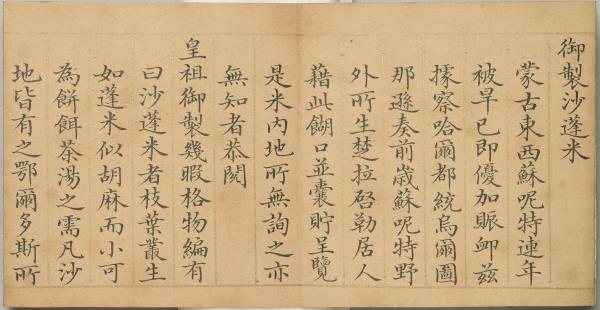 御製沙蓬米
蒙古東西蘇呢特連年
被旱已即優加賑䘏兹
據察哈爾都統烏爾圖
那遜奏前歲蘇呢特野
外所生楚拉啓勒居人
藉此餬口並囊貯呈覽
是米內地所無詢之亦
無知者恭閱
皇祖御製幾暇格物編有
曰沙蓬米者枝葉叢生
如蓬米似胡麻而小可
為餅餌茶湯之需凡沙
地皆有之鄂爾多斯所